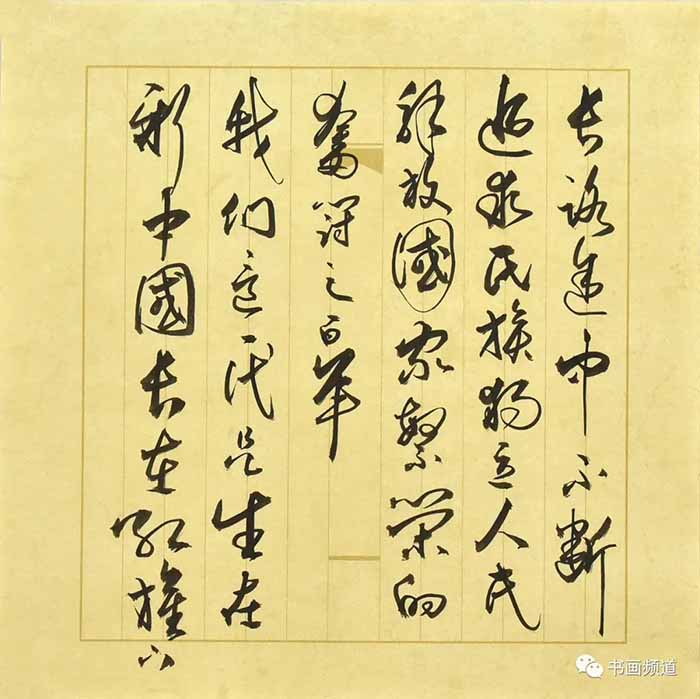 长路途中不断
追求民族独立人民
解放國家繁荣的
奮鬥之百年
我们这一代是生在
新中國长在红旗下
书画频道